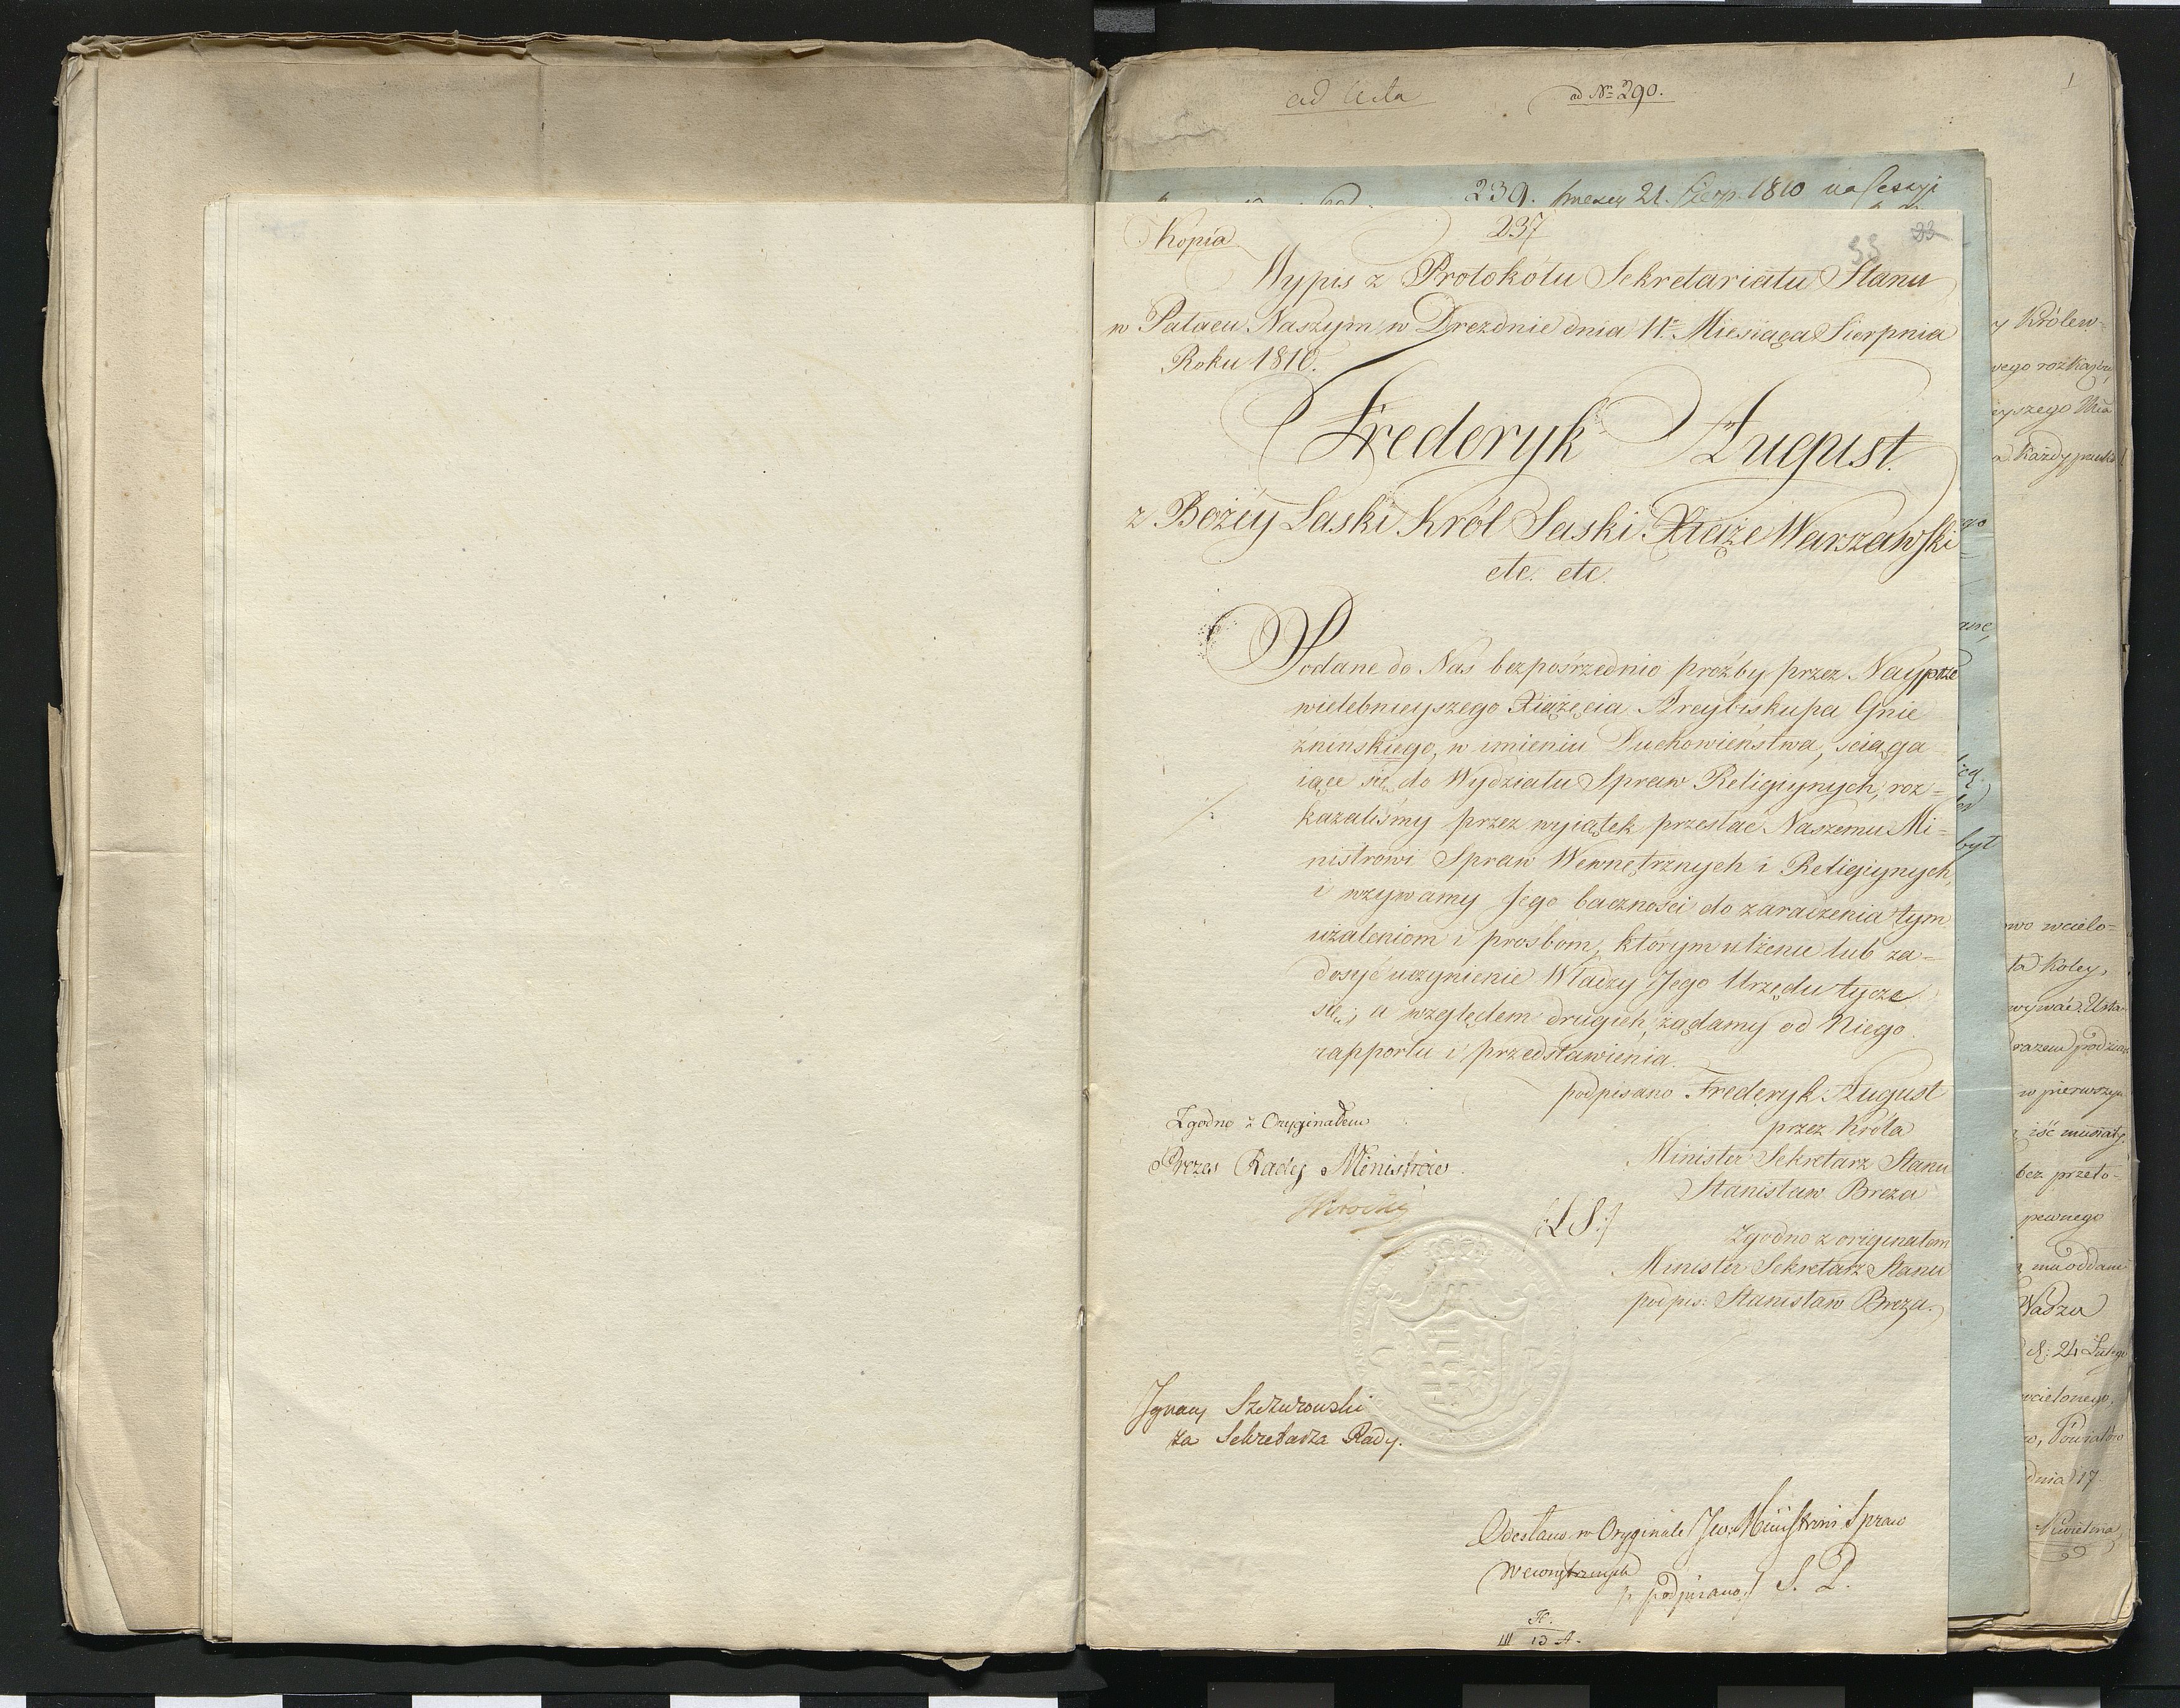 ad Acta
ad Nro 290.
1
239. 21. Sierp. 1810 na Sessyi
Kopia
237
33
Wypis z Protokółu Sekretariatu Stanu
w Pałacu Naszym w Dreznie dnia 11. Miesiąca Sierpnia
Roku 1810.
Frederyk August
z Bożéy Łaski Król Saski Xiąże Warszawski
etc. etc.
Podane do Nas bezpośrzednio proźby przez Nayprze
wielebnieyszego Xiążęcia Arcybiskupa Gnie
źnińskiego, w imieniu Duchowieństwa, sciąga
iące się do Wydziału Spraw Religiynych, roz=
kazaliśmy przez wyiątek przesłać Naszemu Mi=
nistrowi Spraw Wewnętrznych i Religiynych,
i wzywamy Jego baczności do zaradzenia tym
użaleniom i prosbom, którym ulżenie lub za=
dosyć uczynienie Władzy Jego Urzędu tycze
się; a względem drugich, żądamy od Niego
rapportu i przedstawienia.
podpisano Frederyk August
przez Króla
Minister Sekretarz Stanu
Stanisław Breza
/:L.S:/
Zgodno z originałem
Minister Sekretarz Stanu
podpis: Stanisław Breza.
Zgodno z Oryginałem
Prezes Rady Ministrów
Ignacy Szczurowski
za Sekretarza Rady.
Odesłano w Oryginale Jw. Ministrowi Spraw
Wewnętrznych
/: podpisano :/ S. P.
III 13 A.
y Królew=
wego rozkazu
każdy punkt
był
owo wcielo=
ta Koley,
w pierwszym
iść musiały.
bez przeło-
pewnego
d: 24 Lutego
wcielonego,
Powiatów
dnia 17